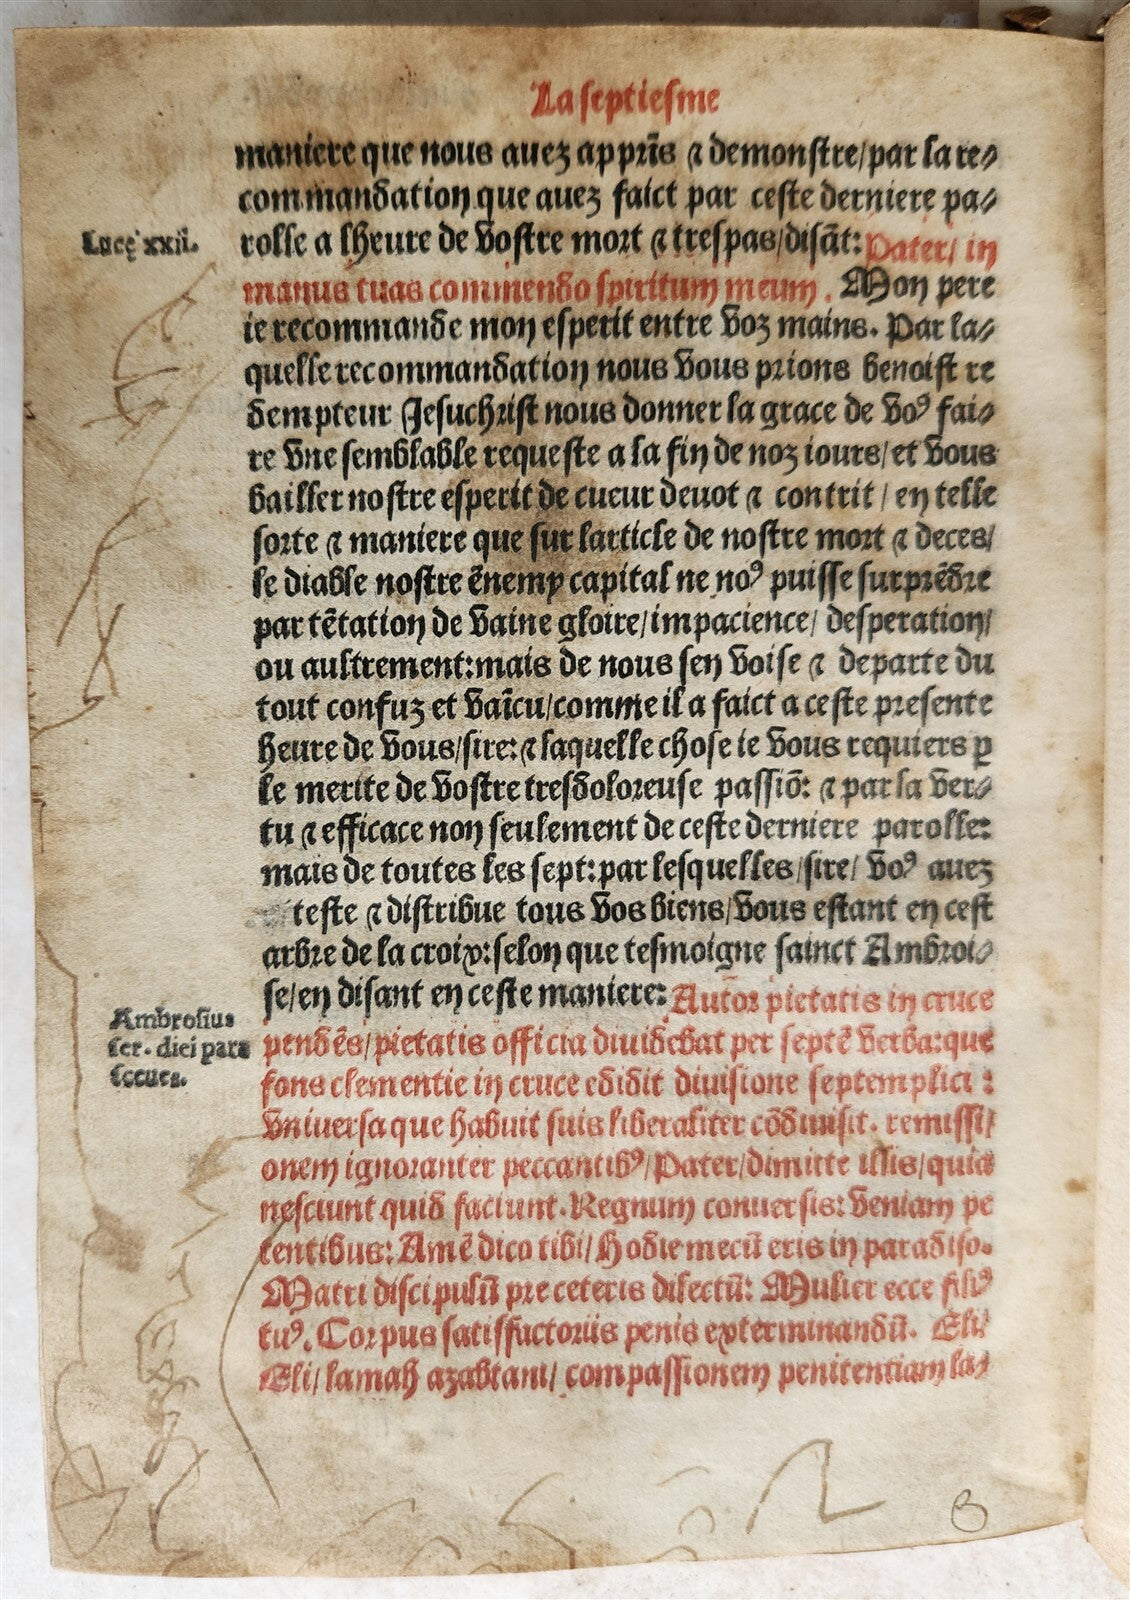 La septiesme
maniere que nous auez appris̄ ⁊ demonstre/par la re⸗
commandation que auez faict par ceste derniere pa⸗
Luce xxii.
rolle a lheure de vostre mort ⁊ trespas/disāt: Pater/ in
manus tuas commendo spiritum meum. Mon pere
ie recommande mon esperit entre voz mains. Par la⸗
quelle recommandation nous vous prions benoist re
dempteur Jesuchrist nous donner la grace de voꝰ fai⸗
re vne semblable requeste a la fin de noz iours/et vous
bailler nostre esperit de cueur deuot ⁊ contrit/ en telle
sorte ⁊ maniere que sur larticle de nostre mort ⁊ deces/
le diable nostre ēnemy capital ne noꝰ puisse surprēdre
par tētation de vaine gloire/impacience/ desperation/
ou aultrement:mais de nous sen voise ⁊ departe du
tout confuz et vaīcu/comme il a faict a ceste presente
heure de vous/sire:⁊ laquelle chose ie vous requiers ꝑ
le merite de vostre tresdoloreuse passiō: ⁊ par la ver⸗
tu ⁊ efficace non seulement de ceste derniere parolle:
mais de toutes les sept:par lesquelles/sire/ voꝰ auez
teste ⁊ distribue tous vos biens/vous estant en cest
arbre de la croix:selon que tesmoigne sainct Ambroi⸗
se/en disant en ceste maniere: Autor pietatis in cruce
Ambrosius
ser. diei para
sceues.
pendēs/pietatis officia diuidebat per septē verba:que
fons clementie in cruce edidit diuisione septemplici :
vniuersa que habuit suis liberaliter cōdiuisit. remissi/
onem ignoranter peccantibꝰ/Pater/dimitte illis/quia
nesciunt quid faciunt. Regnum conuersis: veniam pe
tentibus: Amē dico tibi/hodie mecū eris in paradiso.
Matri discipulū pre ceteris dilectū: Mulier ecce filiꝰ
tuꝰ. Corpus satisfactoriis penis exterminandū. Eli/
Eli/ lamah azabtani/ compassionem penitentiam la⸗